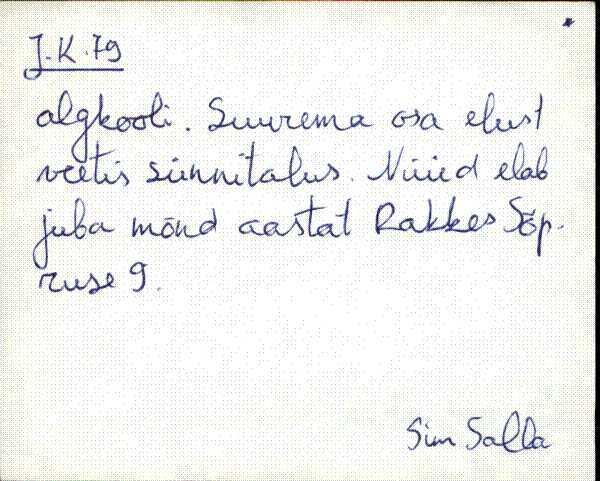 J.K.79
algkooli. Suurema osa elust
veetis sünnitalus. Nüüd elab
juba mõnd aastat Rakkes Sõp-
ruse 9.
Sim Salla